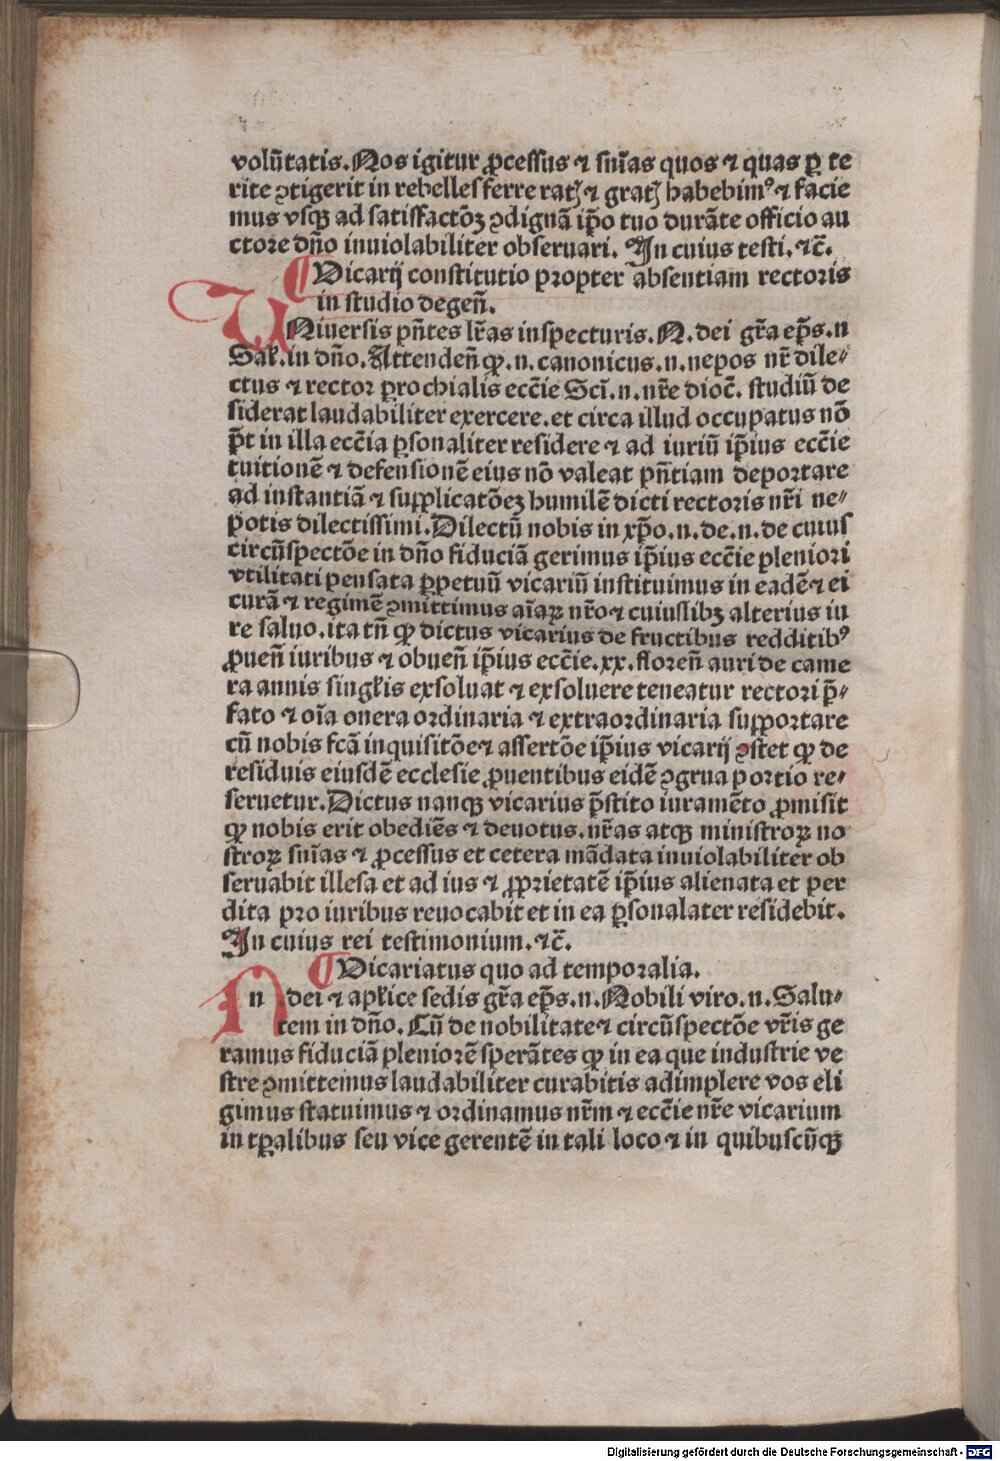 volūtatis. Nos igitur ꝓcessus ⁊ sniãs quos ⁊ quas ꝑ te
rite ꝯtigerit in rebelles ferre ratā ⁊ gratā habebimꝰ ⁊ facie
mus vsqꝫ ad satisfactōꝫ ꝯdignā ip̄o tuo durāte officio au
ctore dño inuiolabiliter obseruari. In cuius testi. ⁊c̄.
¶ Vicarij constitutio propter absentiam rectoris
in studio degeñ.
VNiuersis pñtes lr̄as inspecturis. N. dei gr̄a ep̄s. n
Saƚ. in dño. Attendeñ ꝙ. n. canonicus. n. nepos nr̄ dile⸗
ctus ⁊ rector ꝑrochialis ecc̄ie Sci̅. n. nr̄e dioc̄. studiū de
siderat laudabiliter exercere. et circa illud occupatus nō
p̄t in illa ecc̄ia ꝑsonaliter residere ⁊ ad iuriū ip̄ius ecc̄ie
tuitionē ⁊ defensionē eius nō valeat pñtiam deportare
ad instantiā ⁊ supplicatōeꝫ humilē dicti rectoris nr̄i ne⸗
potis dilectissimi. Dilectū nobis in xp̄o. n. de. n. de cuius
circūspectōe in dño fiduciā gerimus ip̄ius ecc̄ie pleniori
vtilitati pensata ꝑpetuū vicariū instituimus in eadē ⁊ ei
curā ⁊ regimē ꝯmittimus aīaꝝ nr̄o ⁊ cuiuslibꝫ alterius iu
re saluo. ita tñ ꝙ dictus vicarius de fructibus redditibꝰ
ꝓueñ iuribus ⁊ obueñ ip̄ius ecc̄ie. xx. floreñ auri de came
ra annis singƚis exsoluat ⁊ exsoluere teneatur rectori p̄⸗
fato ⁊ oīa onera ordinaria ⁊ extraordinaria supportare
cū nobis fcā inquisitōe ⁊ assertōe ip̄ius vicarij ꝯstet ꝙ de
residuis eiusdē ecclesie ꝓuentibus eidē ꝯgrua portio re⸗
seruetur. Dictus nanqꝫ vicarius p̄stito iuramēto ꝓmisit
ꝙ nobis erit obediēs ⁊ deuotus. nr̄as atqꝫ ministroꝝ no
stroꝝ sniãs ⁊ ꝓcessus et cetera mādata inuiolabiliter ob
seruabit illesa et ad ius ⁊ ꝓprietatē ip̄ius alienata et per
dita pro iuribus reuocabit et in ea ꝑsonalater residebit.
In cuius rei testimonium. ⁊c̄.
¶ Vicariatus quo ad temporalia.
N n dei ⁊ apƚice sedis gr̄a ep̄s. n. Nobili viro. n. Salu⸗
tem in dño. Cū de nobilitate ⁊ circūspectōe vr̄is ge
ramus fiduciā pleniorē sperātes ꝙ in ea que industrie ve
stre ꝯmittemus laudabiliter curabitis adimplere vos eli
gimus statuimus ⁊ ordinamus nr̄m ⁊ ecc̄ie nr̄e vicarium
in tꝑalibus seu vice gerentē in tali loco ⁊ in quibuscūqꝫ
Digitalisierung gefördert durch die Deutsche Forschungsgemeinschaft - DFG